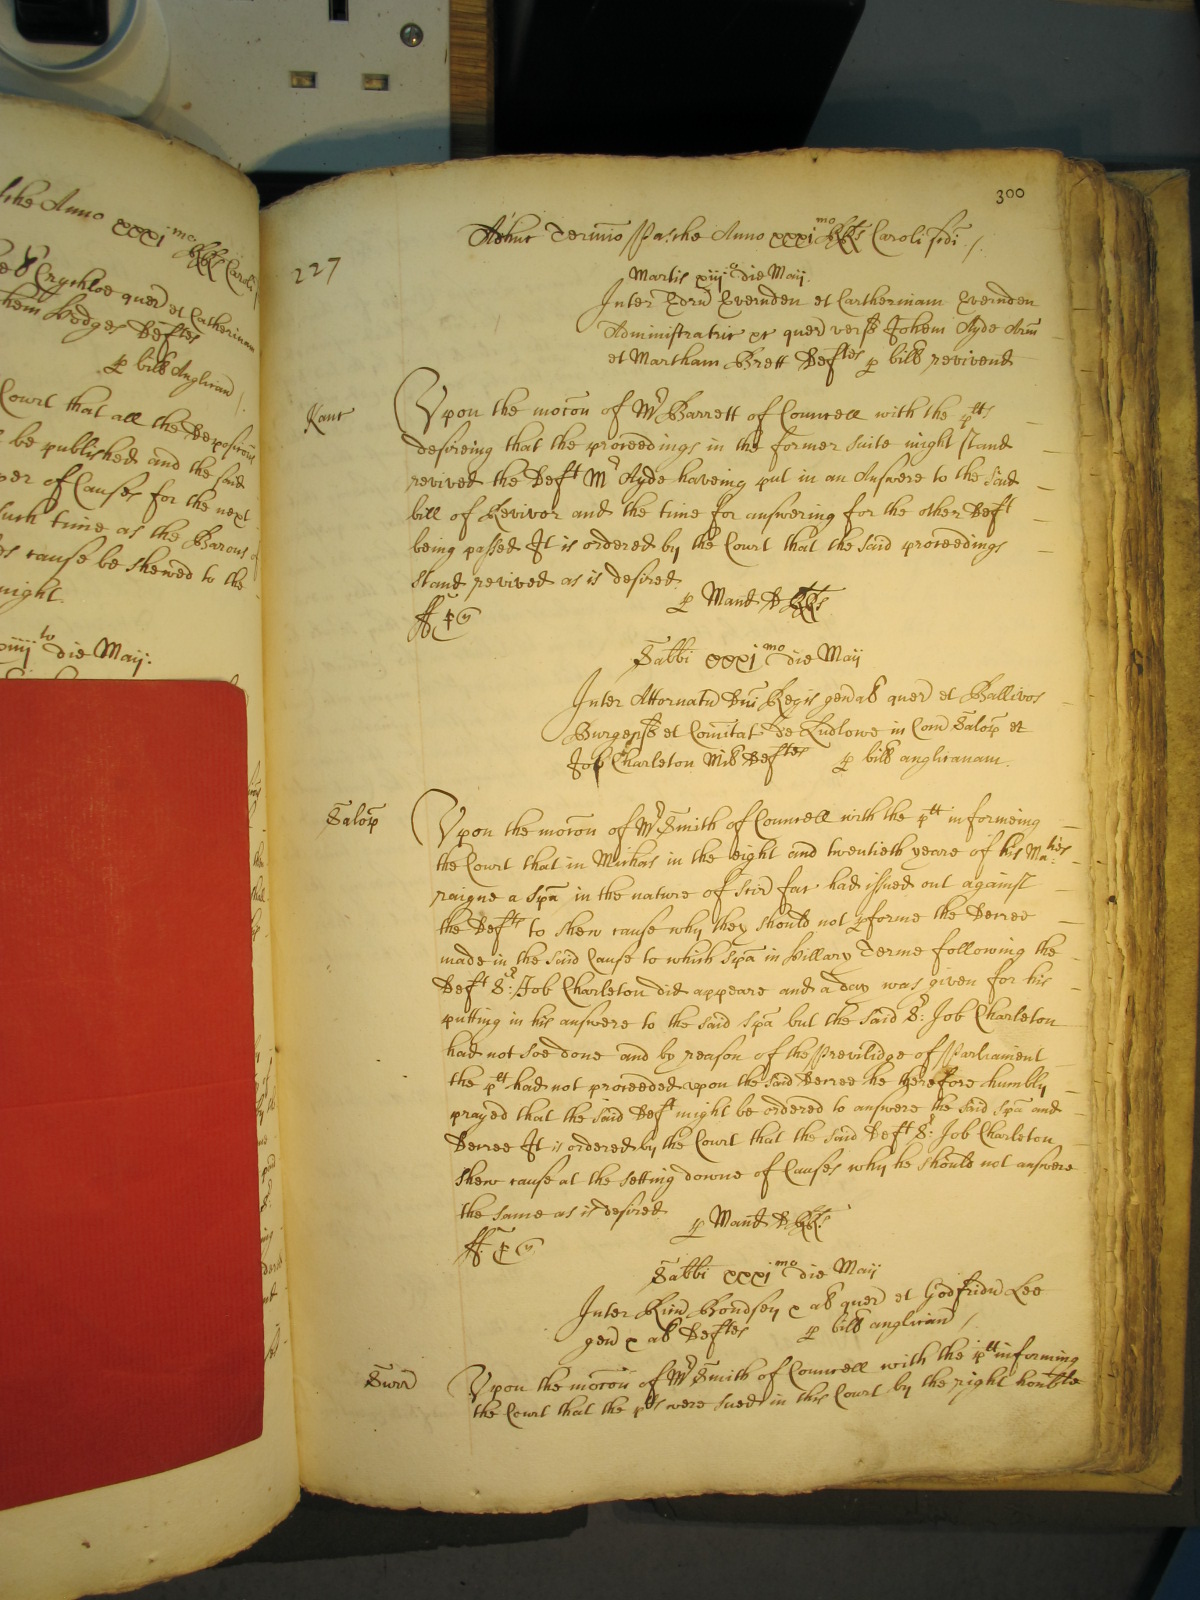 sche Anno xxxi mo RRs Caroli
Crychloe quer et Catherinam
hem Hodges Deftes
p bill Anglican
Court that all the Deposicons
be published and the said
per of Causes for the next
such time as the Barons of
es cause be shewed to the
night.
xiiij to die Maij.
300
Adhuc Termio Pasche Anno xxxi mo RRs Caroli scdi
227
Martis xiij o die Maij.
Inter Edrū Evernden et Catherinam Evernden
Administratric &c quer versꝰ Johem Ayde Arm
et Martham Brett Deftes p bill revivend
Kanc
Vpon the mocon of Mr Barrett of Councell with the plts
desireing that the proceedings in the former suite might stand
revived the Deft Mr Ayde haveing put in an Answere to the said
bill of Revivor and the time for answering for the other Deft
being passed It is ordered by the Court that the said proceedings
stand revived as is desired
p Mand BRRs
Sabbi xxxi mo die Maij
Inter Attornatū Dni Regis genal quer et Ballivos
Burgens et Comitat de Ludlowe in Com Salop et
Job Charleton Mil Deftes p bill anglicanam.
Salop
Vpon the mocon of Mr Smith of Councell with the plt informeing
the Court that in Michas in the eight and twentieth yeare of his Maties
raigne a spa in the nature of Scir fac had issued out against
the Defts to shew cause why they should not pforme the Decree
made in the said Cause to which spa in Hillary Terme following the
Deft Sr: Job Charleton did appeare and a day was given for his
putting in his answere to the said spa but the said Sr: Job Charleton
had not soe done and by reason of the Previlidge of Parliament
the plt had not proceeded vpon the said Decree he therefore humbly
prayed that the said Deft might be ordered to answere the said spa and
Decree It is ordered by the Court that the said Deft Sr: Job Charleton
shew cause at the setting downe of Causes why he should not answere
the same as is desired
p Mand BRRs
Sabbi xxxi mo die Maij
Inter Ricū &c al quer et Godfridū Lee
gen &c al Deftes p bill anglican
Surr
Vpon the mocon of Mr Smith of Councell with the plt informing
the Court that the plts were sued in this Court by the right honble